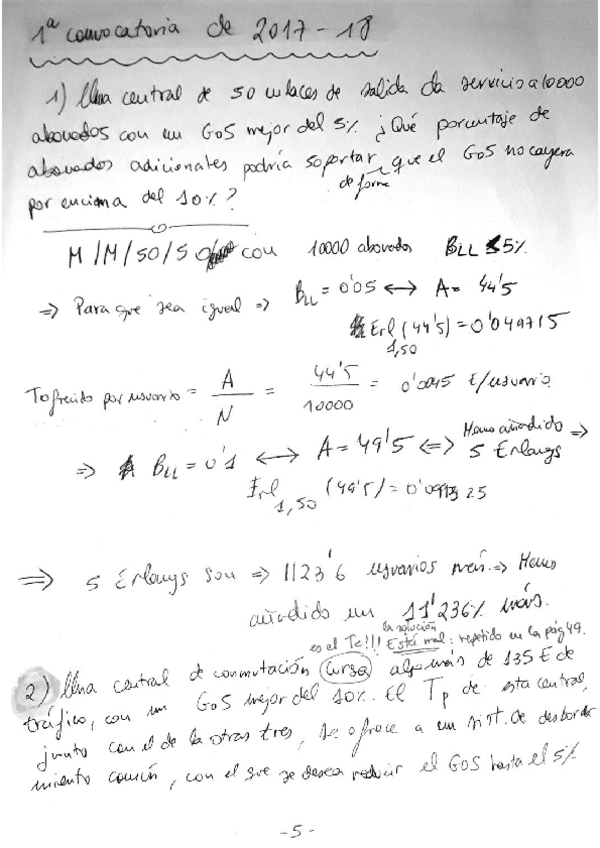 1ª convocatoria de 2017-18
1) Una central de 50 enlaces de salida da servicio a 10000
abonados con un GoS mejor del 5% ¿Qué porcentaje de
abonados adicionales podría soportar, de forma que el GoS no cayera
por encima del 10%?
M/M/50/50 con 10000 abonados BLL 5%
=> Para que sea igual => BLL = 0'05 <-> A = 44'5
Erl 1,50 (44'5) = 0'049715
Tofrecido por usuario = A/N = 44'5/10000 = 0'0045 E/usuario
=> BLL = 0'1 <-> A = 49'5 <=> Hemos añadido 5 Erlangs =>
Erl 1,50 (49'5) = 25
=> 5 Erlangs son => 1123'6 usuarios más. => Hemos
añadido un 11'236% más.
es el Tc!!! la solución Está mal: repetido en la pág 49.
2) Una central de conmutación cursa algo más de 135 E de
tráfico, con un GoS mejor del 10%. El Tp de esta central,
junto con el de la otras tres, se ofrece a un sist. de desborda
miento común, con el que se desea reducir el GOS hasta el 5%
-5-